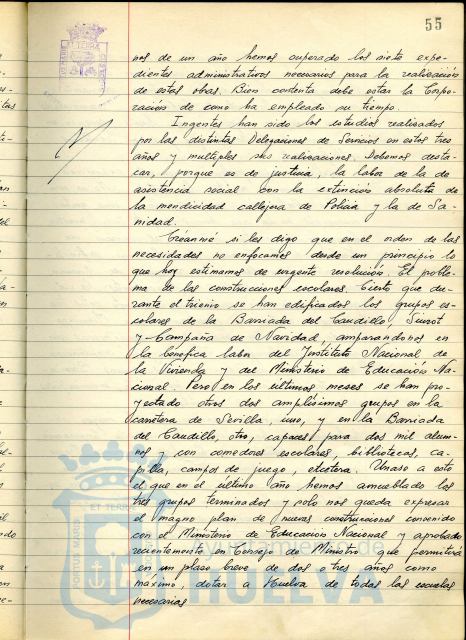 55
nos de un año hemos superado los siete expe-
dientes administrativos necesarios para la realización
de estas obras. Bien contenta debe estar la Corpo-
ración de como ha empleado su tiempo.
Ingentes han sido los estudios realizados
por las distintas Delegaciones de Servicios en estos tres
años y multiples sus realizaciones. Debemos desta-
car, porque es de justicia, la labor de la de
asistencia social con la extinción absoluta de
la mendicidad callejera de Policia y la de Sa-
nidad.
Créanme si les digo que en el orden de las
necesidades no enfocamos desde un principio lo
que hoy estimamos de urgente resolución. El proble-
ma de las construcciones escolares. Cierto que du-
rante el trienio se han edificados los grupos es-
colares de la Barriada del Caudillo, Siurot
y Campaña de Navidad amparandonos en
la benefica labor del Instituto Nacional de
la Vivienda y del Ministerio de Educación Na-
cional. Pero en los últimos meses se han pro-
yectado otros dos amplísimos grupos en la
carretera de Sevilla, uno, y en la Barriada
del Caudillo, otro, capaces para dos mil alum-
nos, con comedores escolares, bibliotecas, ca-
pilla, campos de juego, etcetera. Unase a esto
el que en el último año hemos amueblado los
tres grupos terminados y solo nos queda expresar
el magno plan de nuevas construcciones convenido
con el Ministerio de Educación Nacional y aprobado
recientemente en Consejo de Ministro que permitirá
en un plazo breve de dos o tres años como
maximo, dotar a Huelva de todas las escuelas
necesarias
PORTUS MARIS ET TERRE
de
HUELVA